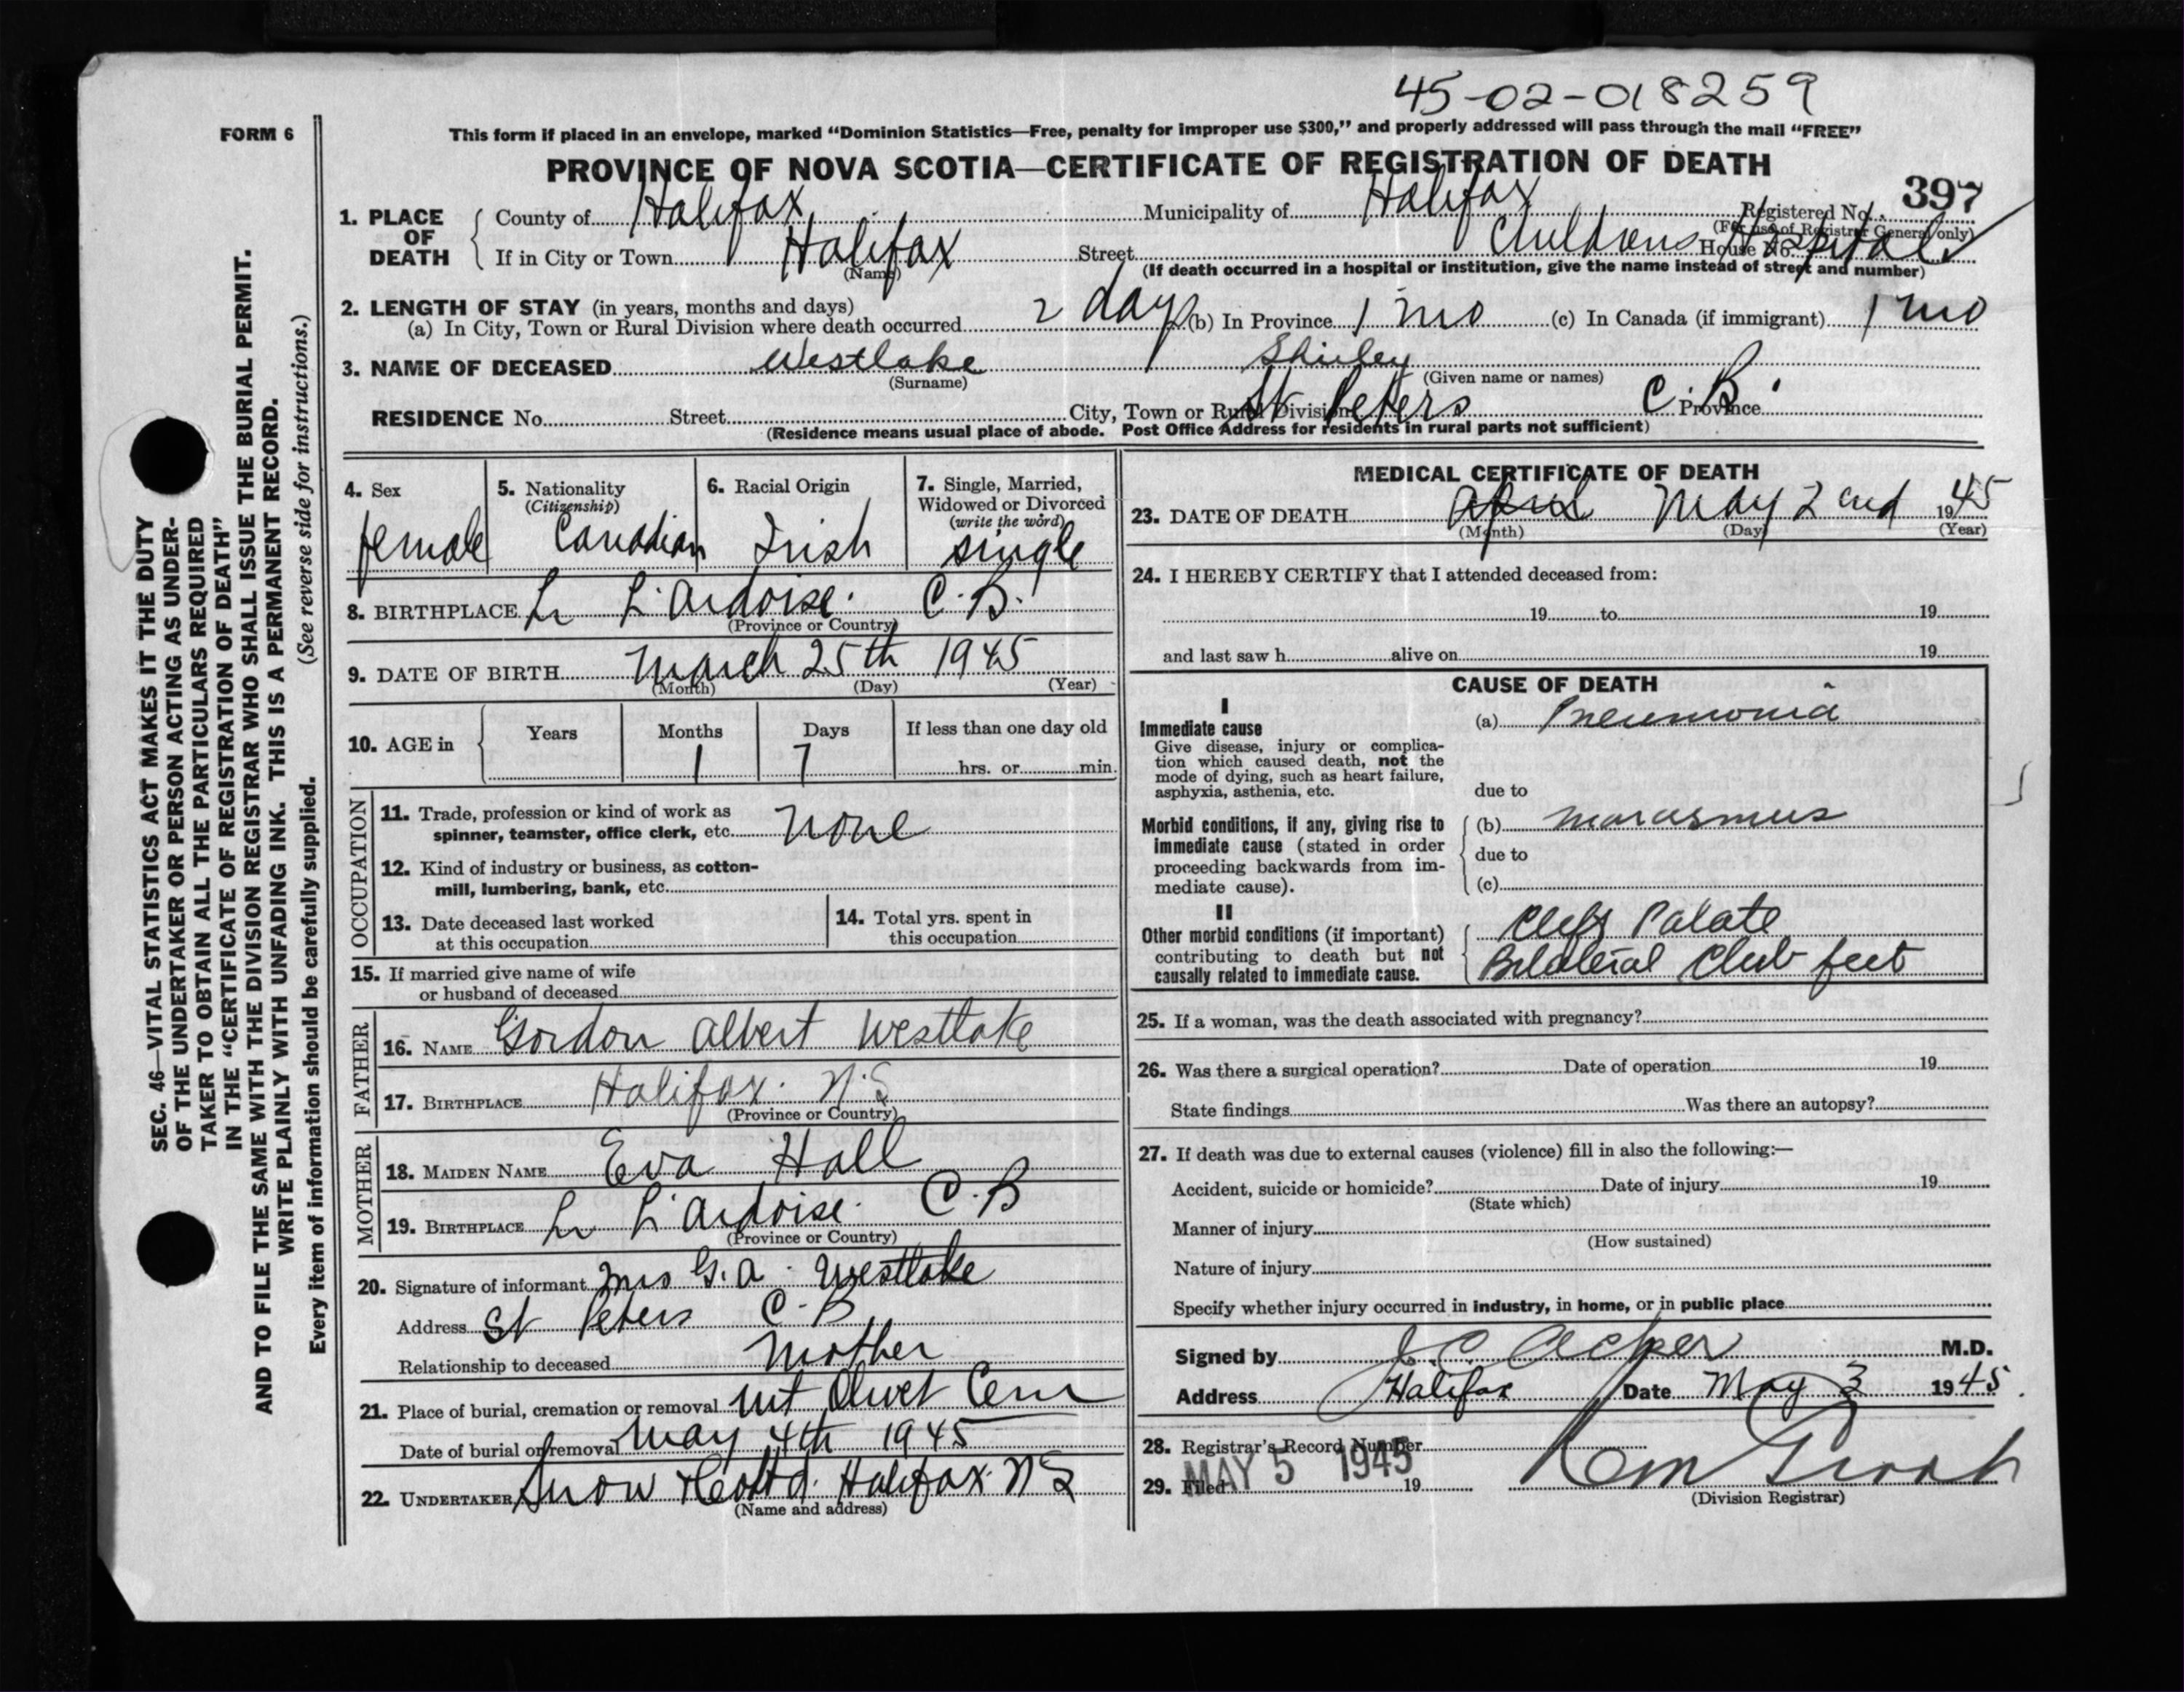 45-02-018259
FORM 6
This form if placed in an envelope, marked “Dominion Statistics—Free, penalty for improper use $300,” and properly addressed will pass through the mail “FREE”
PROVINCE OF NOVA SCOTIA—CERTIFICATE OF REGISTRATION OF DEATH
397
1. PLACE OF DEATH County of Halifax Municipality of Halifax Registered No.
(For use of Registrar General only)
If in City or Town Halifax Street Childrens Hospital House No.
(Name) (If death occurred in a hospital or institution, give the name instead of street and number)
2. LENGTH OF STAY (in years, months and days)
(a) In City, Town or Rural Division where death occurred 2 days (b) In Province 1 mo (c) In Canada (if immigrant) 1 mo
3. NAME OF DECEASED Westlake Shirley
(Surname) (Given name or names)
RESIDENCE No. Street City, Town or Rural Division St Peters C.B. Province
(Residence means usual place of abode. Post Office Address for residents in rural parts not sufficient)
SEC. 46—VITAL STATISTICS ACT MAKES IT THE DUTY
OF THE UNDERTAKER OR PERSON ACTING AS UNDER-
TAKER TO OBTAIN ALL THE PARTICULARS REQUIRED
IN THE “CERTIFICATE OF REGISTRATION OF DEATH”
AND TO FILE THE SAME WITH THE DIVISION REGISTRAR WHO SHALL ISSUE THE BURIAL PERMIT.
WRITE PLAINLY WITH UNFADING INK. THIS IS A PERMANENT RECORD.
Every item of information should be carefully supplied. (See reverse side for instructions.)
4. Sex
female
5. Nationality
(Citizenship)
Canadian
6. Racial Origin
Irish
7. Single, Married,
Widowed or Divorced
(write the word)
single
8. BIRTHPLACE L. L'Ardoise. C.B.
(Province or Country)
9. DATE OF BIRTH March 25th 1945
(Month) (Day) (Year)
10. AGE in Years Months Days If less than one day old
1 7 hrs. or min.
OCCUPATION
11. Trade, profession or kind of work as
spinner, teamster, office clerk, etc. None
12. Kind of industry or business, as cotton-
mill, lumbering, bank, etc.
13. Date deceased last worked
at this occupation
14. Total yrs. spent in
this occupation
15. If married give name of wife
or husband of deceased
FATHER
16. NAME Gordon Albert Westlake
17. BIRTHPLACE Halifax. N.S
(Province or Country)
MOTHER
18. MAIDEN NAME Eva Hall
19. BIRTHPLACE L. L'Ardoise. C.B
(Province or Country)
20. Signature of informant Mrs G.A. Westlake
Address St Peters C.B
Relationship to deceased Mother
21. Place of burial, cremation or removal Mt Olivet Cem
Date of burial or removal May 4th 1945
22. UNDERTAKER Snow & Co Ltd. Halifax N S
(Name and address)
MEDICAL CERTIFICATE OF DEATH
23. DATE OF DEATH April May 2nd 1945
(Month) (Day) (Year)
24. I HEREBY CERTIFY that I attended deceased from:
19 to 19
and last saw h alive on 19
CAUSE OF DEATH
I
Immediate cause (a) Pneumonia
Give disease, injury or complica-
tion which caused death, not the
mode of dying, such as heart failure,
asphyxia, asthenia, etc. due to
Morbid conditions, if any, giving rise to (b) Marasmus
immediate cause (stated in order due to
proceeding backwards from im-
mediate cause). (c)
II
Other morbid conditions (if important) Cleft Palate
contributing to death but not
causally related to immediate cause. Bilateral Club feet
25. If a woman, was the death associated with pregnancy?
26. Was there a surgical operation? Date of operation 19
State findings Was there an autopsy?
27. If death was due to external causes (violence) fill in also the following:—
Accident, suicide or homicide? Date of injury 19
(State which)
Manner of injury
(How sustained)
Nature of injury
Specify whether injury occurred in industry, in home, or in public place
Signed by J.C. Acker M.D.
Address Halifax Date May 3 1945.
28. Registrar's Record Number
29. Filed MAY 5 1945 19
(Division Registrar)